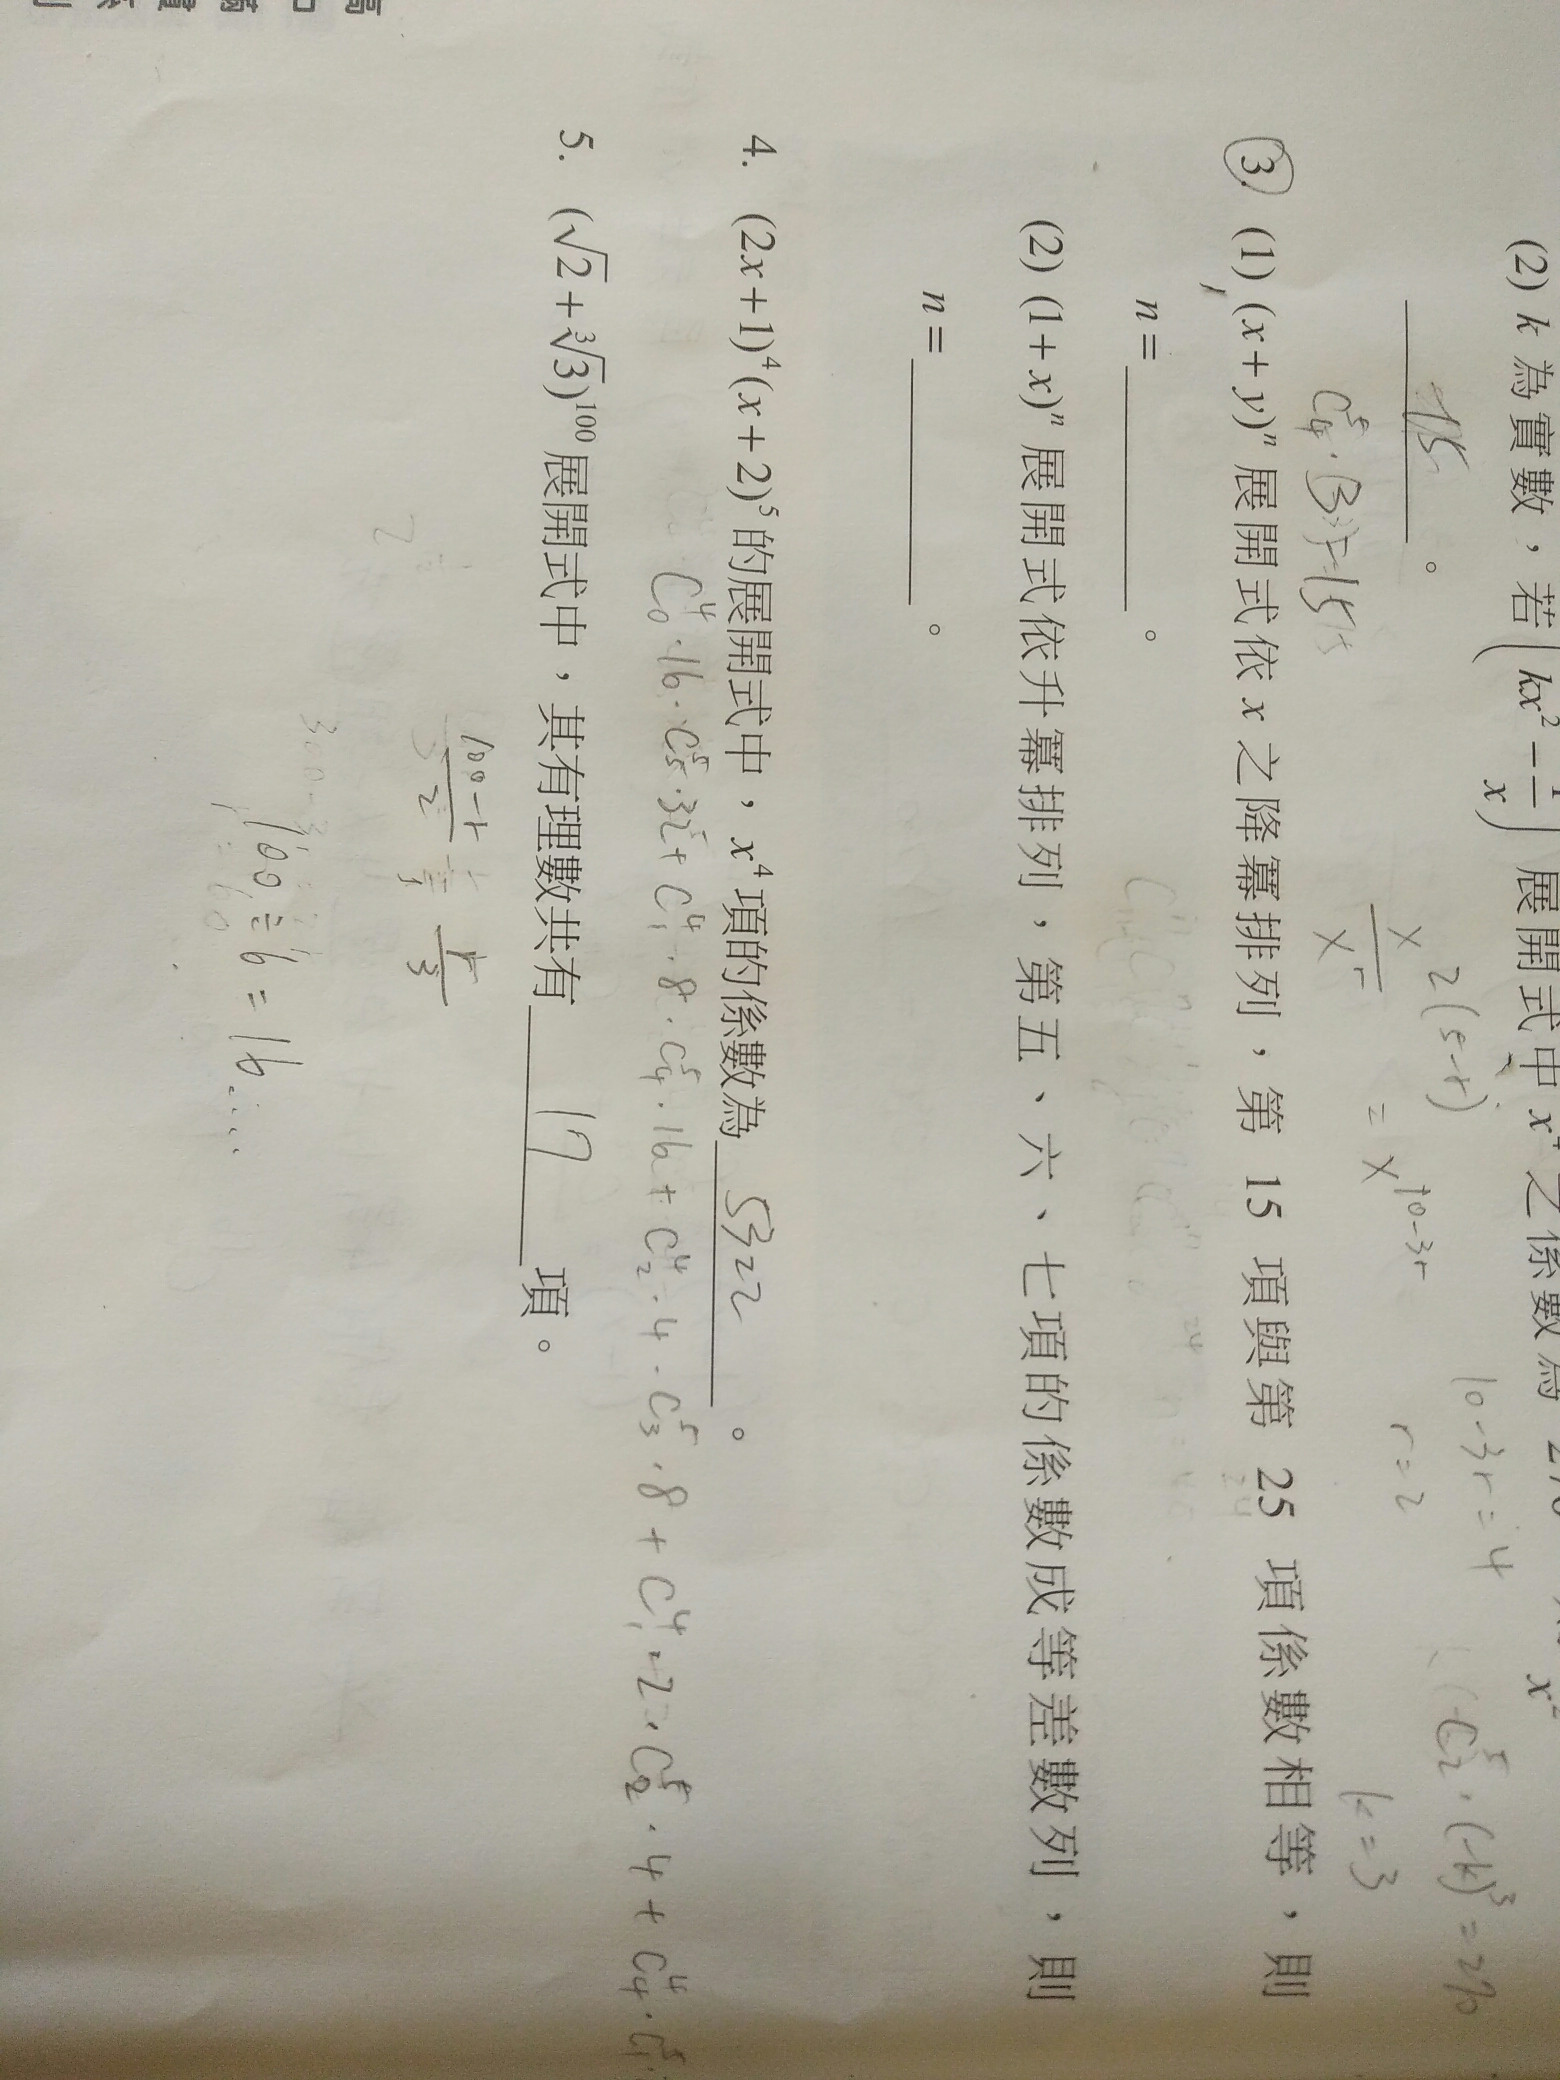 (2) k 為實數，若(kx² - 1/x) 展開式中 x⁴ 之係數為 270
-15 。
10-3r=4
r=2
C₂⁵·(-k)³=270
k=3
x 2(5-r)
/xʳ = x¹⁰⁻³ʳ
③ (1) (x+y)ⁿ 展開式依 x 之降冪排列，第 15 項與第 25 項係數相等，則
n= ______ 。
(2) (1+x)ⁿ 展開式依升冪排列，第五、六、七項的係數成等差數列，則
n= ______ 。
4. (2x+1)⁴(x+2)⁵的展開式中，x⁴ 項的係數為 5322 。
C₀⁴·16·C₅⁵·32+C₁⁴·8·C₄⁵·16+C₂⁴·4·C₃⁵·8+C₁⁴·2·C₂⁵·4+C₄⁴·C₁⁵
5. (√2+∛3)¹⁰⁰展開式中，其有理數共有 17 項。
100-r/2 r/3
100÷6=16....